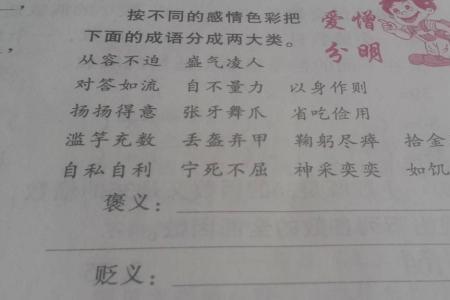 按不同的感情色彩把
下面的成语分成两大类。
爱憎
分明
从容不迫 盛气凌人
对答如流 自不量力 以身作则
扬扬得意 张牙舞爪 省吃俭用
滥竽充数 丢盔弃甲 鞠躬尽瘁 拾金
自私自利 宁死不屈 神采奕奕 如饥
褒义：
贬义：